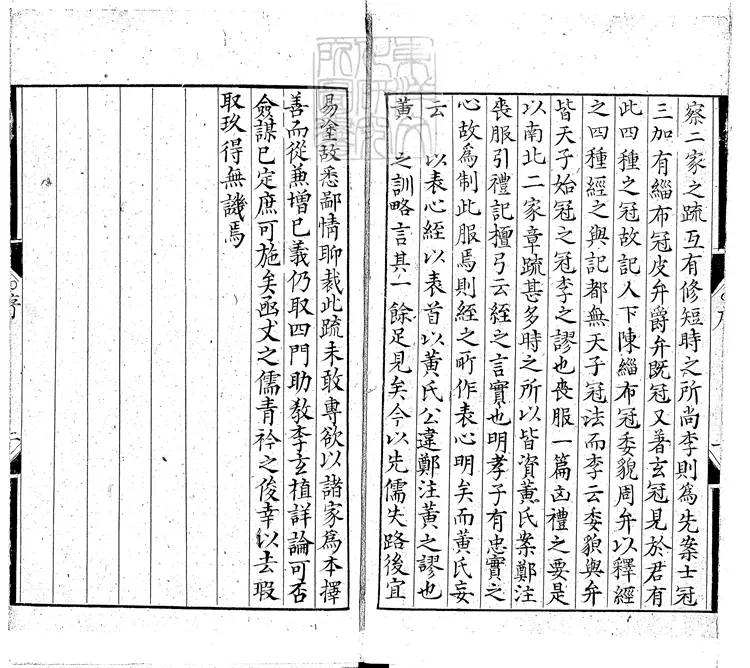 察二家之疏互有修短時之所尚李則為先案士冠
三加有緇布冠皮弁爵弁既冠又著玄冠見於君有
此四種之冠故記人下陳緇布冠委貌周弁以釋經
之四種經之與記都無天子冠法而李云委貌與弁
皆天子始冠之冠李之謬也喪服一篇凶禮之要是
以南北二家章疏甚多時之所以皆資黃氏案鄭注
喪服引禮記檀弓云絰之言實也明孝子有忠實之
心故爲制此服焉則絰之所作表心明矣而黃氏妄
云 以表心絰以表首以黃氏公違鄭注黃之謬也
黃 之訓略言其一餘足見矣今以先儒失路後宜
易塗故悉鄙情聊裁此疏未敢專欲以諸家爲本擇
善而從兼增已義仍取四門助教李玄植詳論可否
僉謀已定庶可施矣函丈之儒青衿之俊幸以去瑕
取玖得無譏焉
序